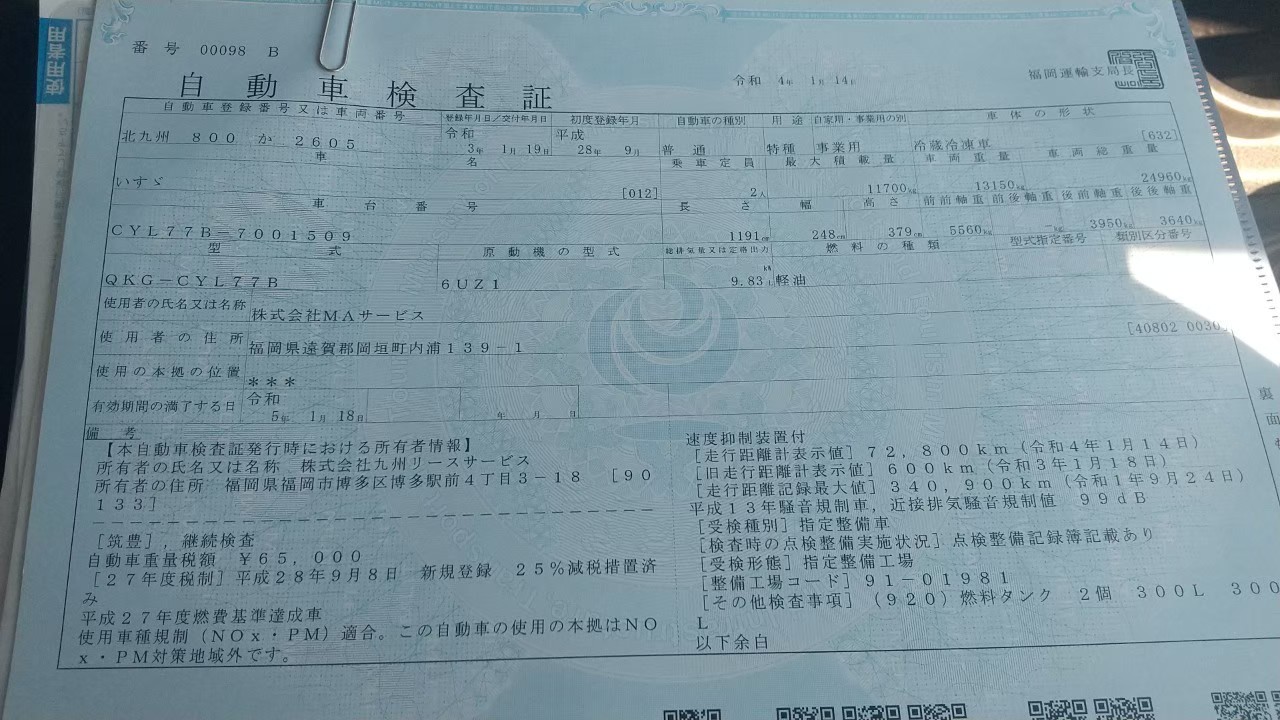 使用者用
番号 00098 B
自動車検査証
令和 4年 1月 14日
福岡運輸支局長
自動車登録番号又は車両番号 登録年月日/交付年月日 初度登録年月 自動車の種別 用途 自家用・事業用の別 車体の形状
北九州 800 か 2605 令和 3年 1月 19日 平成 28年 9月 普通 特種 事業用 冷蔵冷凍車 [632]
車名 乗車定員 最大積載量 車両重量 車両総重量
いすゞ [012] 2人 11700kg 13150kg 24960kg
車台番号 長さ 幅 高さ 前前軸重 前後軸重 後前軸重 後後軸重
CYL77B-7001509 1191cm 248cm 379cm 5560kg -kg 3950kg 3640kg
型式 原動機の型式 総排気量又は定格出力 燃料の種類 型式指定番号 類別区分番号
QKG-CYL77B 6UZ1 9.83 kW L 軽油
使用者の氏名又は名称 株式会社MAサービス
使用者の住所 福岡県遠賀郡岡垣町内浦139-1 [40802 0030
使用の本拠の位置 ***
有効期間の満了する日 令和 5年 1月 18日 年 月 日
備考
【本自動車検査証発行時における所有者情報】
所有者の氏名又は名称 株式会社九州リースサービス
所有者の住所 福岡県福岡市博多区博多駅前4丁目3-18 [90
133]
[筑豊],継続検査
自動車重量税額 ¥65,000
[27年度税制]平成28年9月8日 新規登録 25%減税措置済
み
平成27年度燃費基準達成車
使用車種規制(NOx・PM)適合。この自動車の使用の本拠はNO
x・PM対策地域外です。
速度抑制装置付
[走行距離計表示値]72,800km(令和4年1月14日)
[旧走行距離計表示値]600km(令和3年1月18日)
[走行距離記録最大値]340,900km(令和1年9月24日)
平成13年騒音規制車,近接排気騒音規制値 99dB
[受検種別]指定整備車
[検査時の点検整備実施状況]点検整備記録簿記載あり
[受検形態]指定整備工場
[整備工場コード]91-01981
[その他検査事項](920)燃料タンク 2個 300L 300
L
以下余白
裏
面